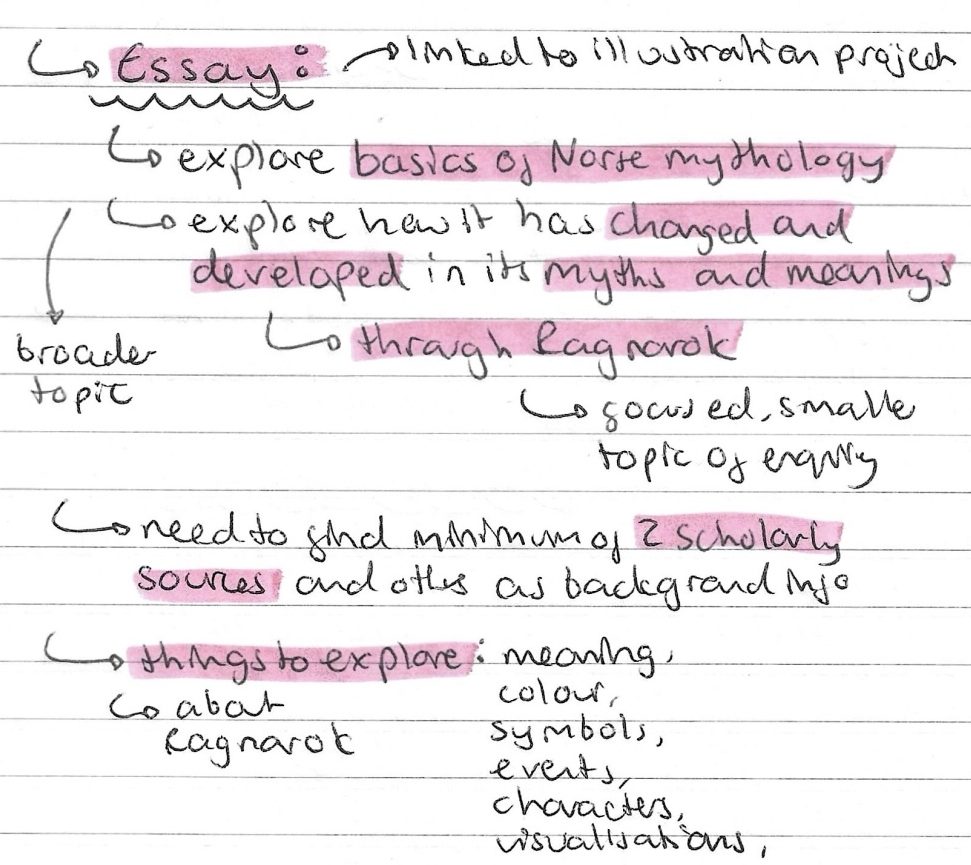 Essay: linked to illustration project
explore basics of Norse mythology
explore how it has changed and
developed in its myths and meanings
through Ragnarok
broader
topic
focused, smaller
topic of enquiry
need to find minimum of 2 scholarly
sources and others as background info
things to explore: meaning,
colour,
about
symbols,
Ragnarok
events,
characters,
visualisations,